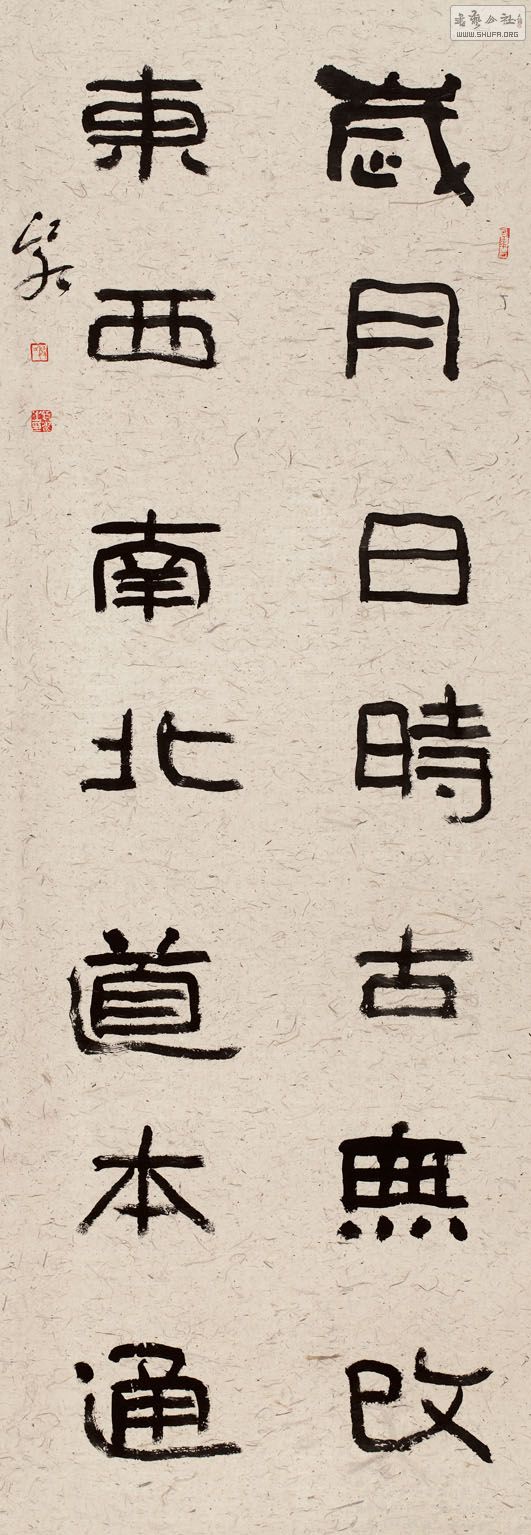 歲月日時古無改
東西南北道本通
書藝公社
WWW.SHUFA.ORG